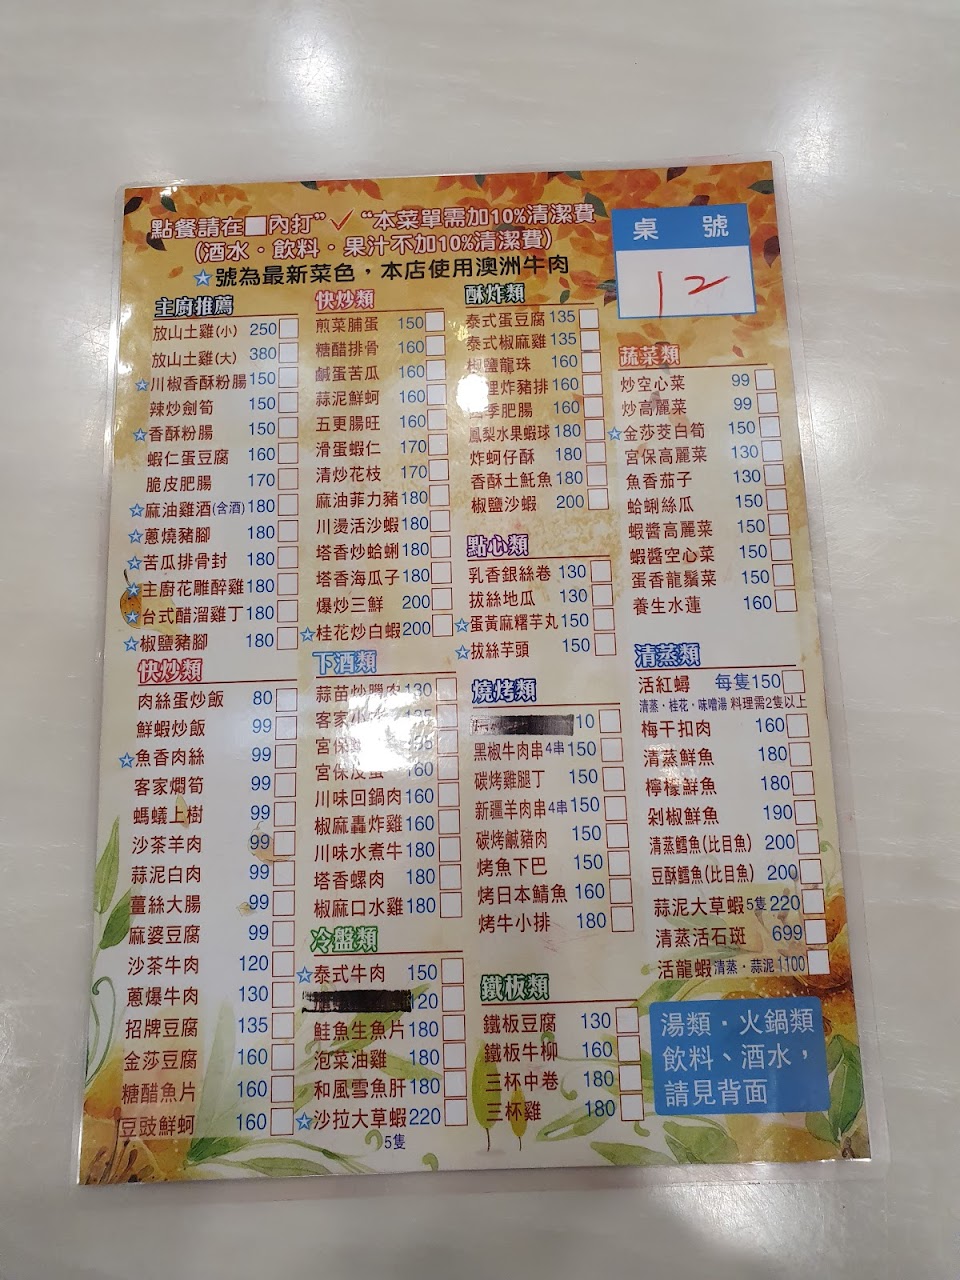 點餐請在■內打"✓"本菜單需加10%清潔費
(酒水·飲料·果汁不加10%清潔費)
☆號為最新菜色,本店使用澳洲牛肉
桌 號
12
主廚推薦
放山土雞(小) 250
放山土雞(大) 380
☆川椒香酥粉腸 150
辣炒劍筍 150
☆香酥粉腸 150
蝦仁蛋豆腐 160
脆皮肥腸 170
☆麻油雞酒(含酒) 180
☆蔥燒豬腳 180
☆苦瓜排骨封 180
☆主廚花雕醉雞 180
☆台式醋溜雞丁 180
☆椒鹽豬腳 180
快炒類
肉絲蛋炒飯 80
鮮蝦炒飯 99
☆魚香肉絲 99
客家燜筍 99
螞蟻上樹 99
沙茶羊肉 99
蒜泥白肉 99
薑絲大腸 99
麻婆豆腐 99
沙茶牛肉 120
蔥爆牛肉 130
招牌豆腐 135
金莎豆腐 160
糖醋魚片 160
豆豉鮮蚵 160
快炒類
煎菜脯蛋 150
糖醋排骨 160
鹹蛋苦瓜 160
蒜泥鮮蚵 160
五更腸旺 160
滑蛋蝦仁 170
清炒花枝 170
麻油菲力豬 180
川燙活沙蝦 180
塔香炒蛤蜊 180
塔香海瓜子 180
爆炒三鮮 200
☆桂花炒白蝦 200
下酒類
蒜苗炒臘肉 130
客家小炒 135
宮保
宮保皮蛋 160
川味回鍋肉 160
椒麻轟炸雞 160
川味水煮牛 180
塔香螺肉 180
椒麻口水雞 180
冷盤類
☆泰式牛肉 150
120
鮭魚生魚片 180
泡菜油雞 180
和風雪魚肝 180
☆沙拉大草蝦 220
5隻
酥炸類
泰式蛋豆腐 135
泰式椒麻雞 135
椒鹽龍珠 160
炸豬排 160
四季肥腸 160
鳳梨水果蝦球 180
炸蚵仔酥 180
香酥土魠魚 180
椒鹽沙蝦 200
點心類
乳香銀絲卷 130
拔絲地瓜 130
☆蛋黃麻糬芋丸 150
☆拔絲芋頭 150
燒烤類
10
黑椒牛肉串4串 150
碳烤雞腿丁 150
新疆羊肉串4串 150
碳烤鹹豬肉 150
烤魚下巴 150
烤日本鯖魚 160
烤牛小排 180
鐵板類
鐵板豆腐 130
鐵板牛柳 160
三杯中卷 180
三杯雞 180
蔬菜類
炒空心菜 99
炒高麗菜 99
☆金莎茭白筍 150
宮保高麗菜 130
魚香茄子 130
蛤蜊絲瓜 150
蝦醬高麗菜 150
蝦醬空心菜 150
蛋香龍鬚菜 150
養生水蓮 160
清蒸類
活紅蟳 每隻150
清蒸·桂花·味噌湯 料理需2隻以上
梅干扣肉 160
清蒸鮮魚 180
檸檬鮮魚 180
剁椒鮮魚 190
清蒸鱈魚(比目魚) 200
豆酥鱈魚(比目魚) 200
蒜泥大草蝦5隻 220
清蒸活石斑 699
活龍蝦清蒸·蒜泥 1100
湯類·火鍋類
飲料、酒水,
請見背面